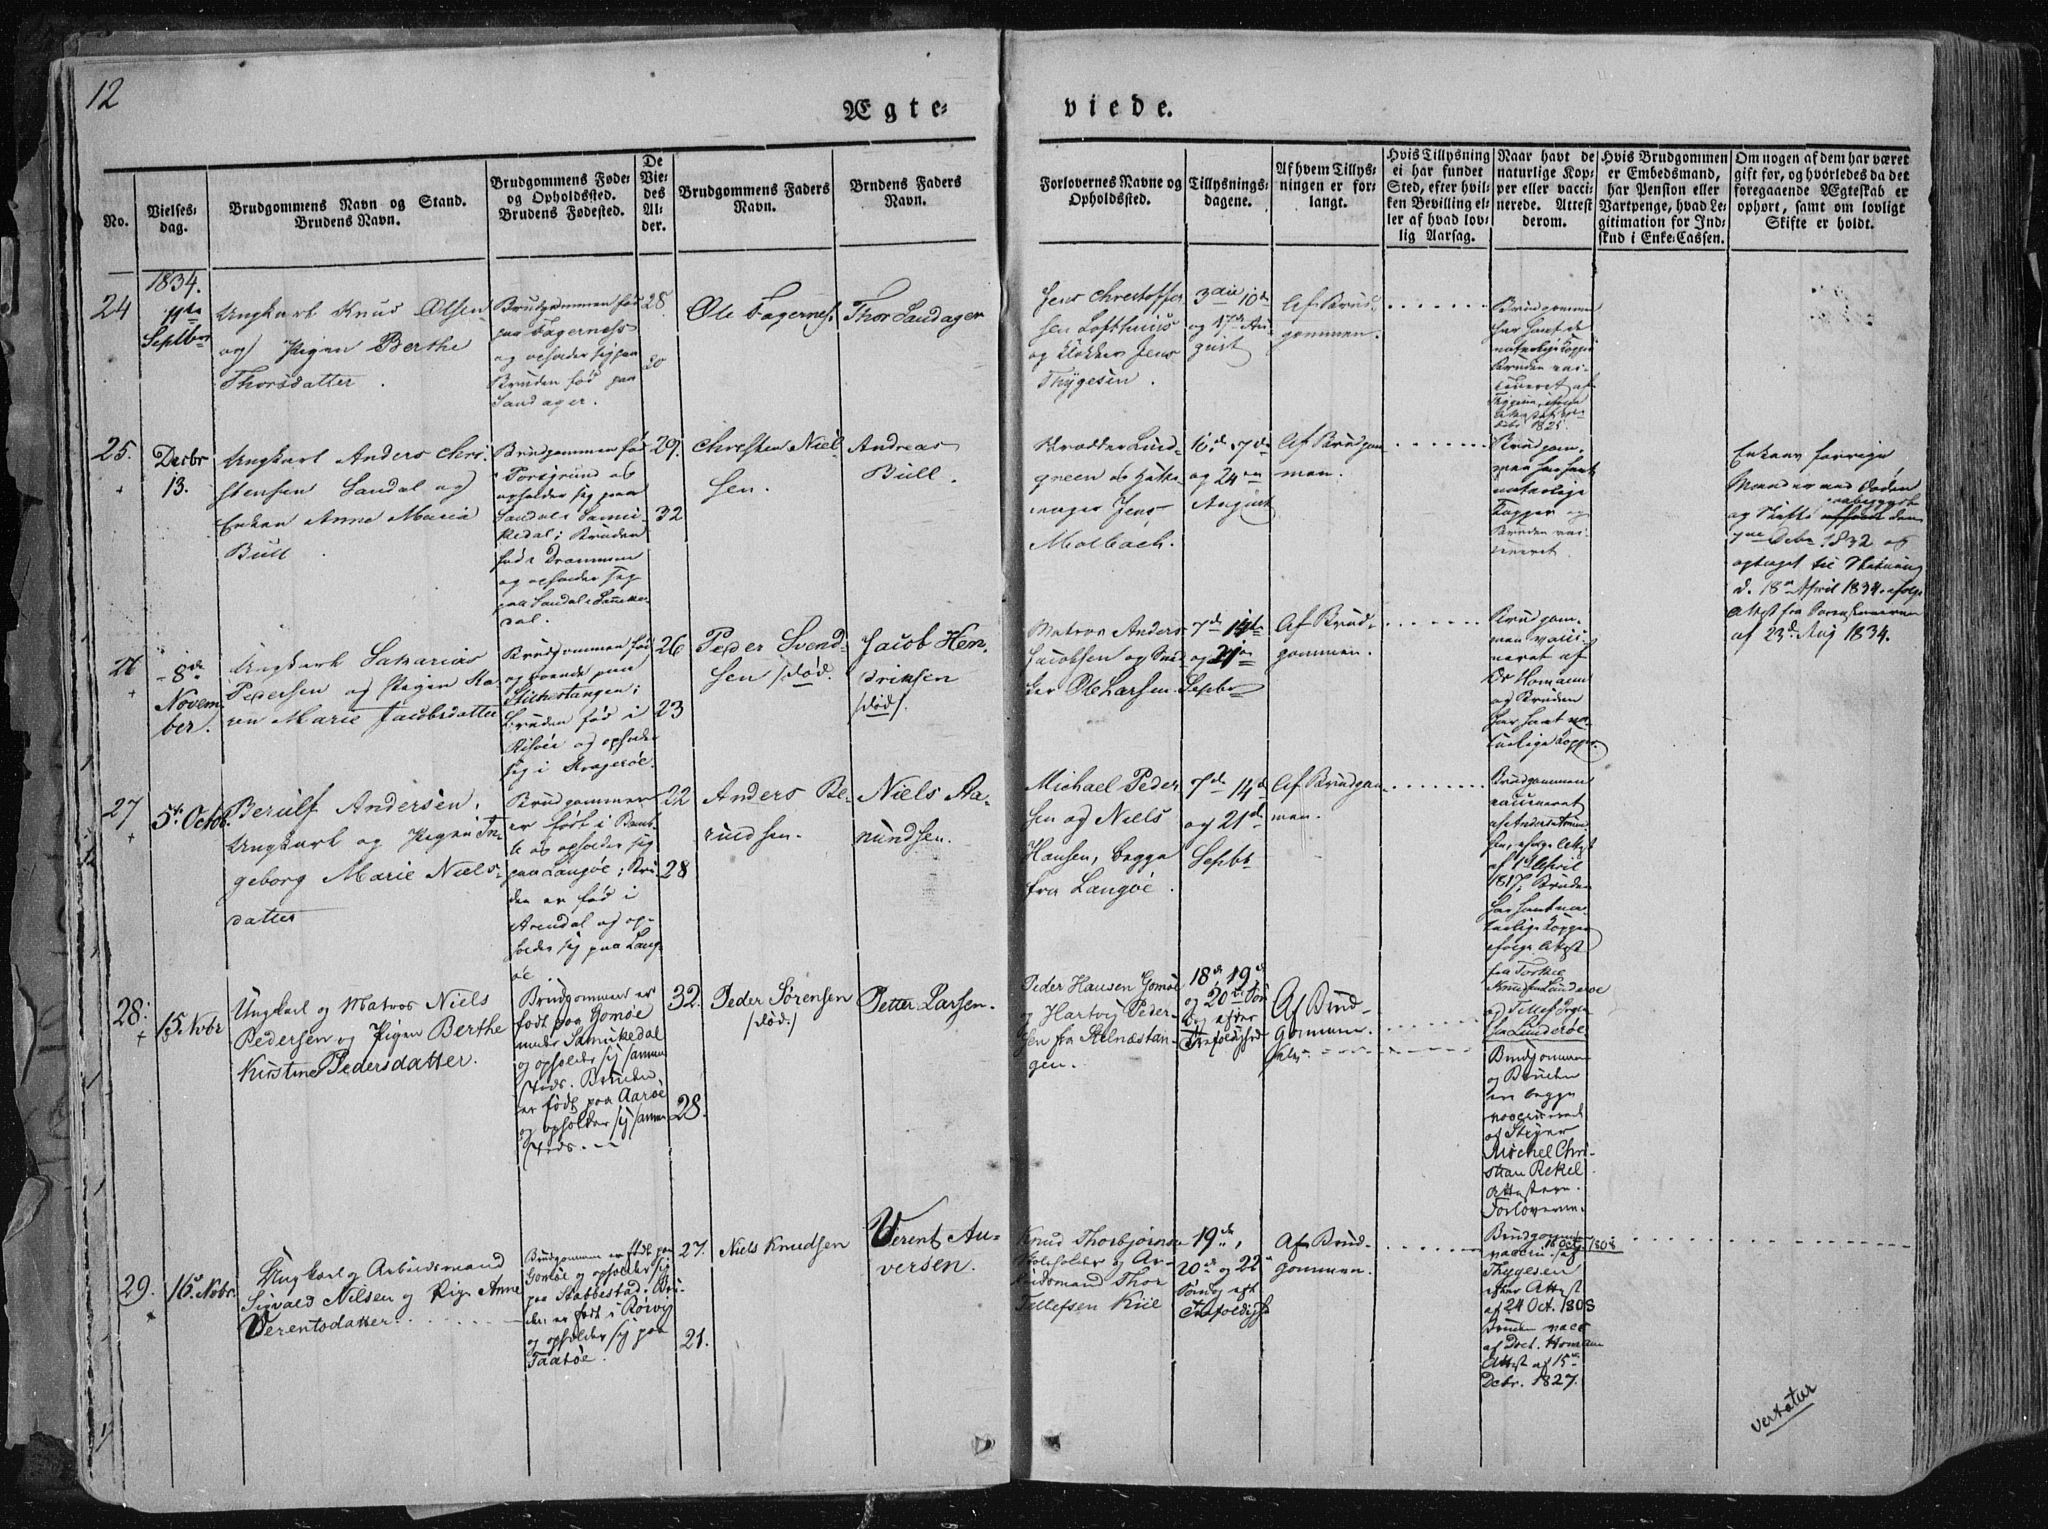 12
Ægte-
viede.
No.
Vielses-
dag.
Brudgommens Navn og Stand.
Brudens Navn.
Brudgommens Føde-
og Opholdssted.
Brudens Fødested.
De
Vie-
des
Al-
der.
Brudgommens Faders
Navn.
Brudens Faders
Navn.
Forlovernes Navne og
Opholdssted.
Tillysnings-
dagene.
Af hvem Tillys-
ningen er for-
langt.
Hvis Tillysning
ei har fundet
Sted, efter hvil-
ken Bevilling el-
ler af hvad lov-
lig Aarsag.
Naar havt de
naturlige Kop-
per eller vacci-
nerede. Attest
derom.
Hvis Brudgommen
er Embedsmand,
har Pension eller
Vartpenge, hvad Le-
gitimation for Ind-
skud i Enke-Cassen.
Om nogen af dem har været
gift før, og hvorledes da det
foregaaende Ægteskab er
ophørt, samt om lovligt
Skifte er holdt.
24
1834.
11te
Septbr
Ungkarl Knud Olsen
og Pigen Berthe
Thorsdatter
Brudgommen fød
paa Fagerness
og opholder sig paa
Bruden fød paa
Sandager.
28
20
Ole Fagerness
Thor Sandager
Jens Christoffer
sen Lofthuus
og Klokker Jens
Thygesen.
3die 10de
og 17de Au-
gust
Af Brud-
gommen.
Brudgommen
har havt de
naturlige Kopper
Bruden vac-
cineret af
Thygesen, ifølge
1825.
25.
Decbr
13.
Ungkarl Anders Chri-
stensen Sandal og
Enken Anne Maria
Bull
Brudgommen fød
i Porsgrund og
opholder sig paa
Sandal i Sanni-
kedal; Bruden
fød i Drammen
og opholder sig
paa Sandal i Sannike-
dal.
29.
32
Christen Niel-
sen.
Andreas
Bull.
green og
mager Jens
Molbach.
10de 17de
og 24de
August
Af Brudgom-
men.
Brudgom-
men har havt
naturlige
Kopper og
Bruden vac-
cineret.
Enkens forrige
Mand er ved Døden
og Skifte den
7de Decbr 1832 og
optaget til Slutning
d. 18de April 1834. ifølge
Attest fra
af 23d. Aug 1834.
26
8de
Novem-
ber.
Ungkarl Sakarias
Pedersen og Pigen Ka-
ren Marie Jacobsdatter
Brudgommen fød
og boende paa
Stilnestangen;
Bruden fød i
Risøer og opholder
sig i Kragerøe.
26
23
Peder Svend-
sen /død.
Jacob Hen-
driksen
/død/.
Matros Anders
Jacobsen og Snid-
ker Ole Larsen
7de 14de
og 21de
Septbr
Af Brud-
gommen.
Brudgom-
men vacci-
neret af
Dr Homann
og Bruden
har havt na-
turlige Kopper.
27
5te Octob.
Berulf Andersen,
Ungkarl og Pigen In-
geborg Marie Niels-
datter
Brudgommen
er født i Bamb-
le og opholder sig
paa Langøe; Bru-
den er fød i
Arendal og op-
holder sig paa Lang-
øe.
22
28
Anders Be-
rulfsen.
Niels Aa-
nundsen.
Michael Peder
sen og Niels
Hansen, begge
fra Langøe.
7de 14de
og 21de
Septbr
Af Brudgom-
men.
Brudgommen
vaccineret
af Anders
sen, ifølge Attest
af 1ste April
1817; Bruden
har havt na-
turlige Kopper
ifølge Attest
fra Torkel
Knudsen Lunderøe
og Tellef
Lunderøe.
28.
15. Nobr
Ungkarl og Matros Niels
Pedersen og Pigen Berthe
Kirstine Pedersdatter.
Brudgommen er
født paa Gomøe
under Sannikedal
og opholder sig sammen
steds. Bruden
er født paa Aarøe
og opholder sig sammen
steds. —
32.
28.
Peder Sörensen
/død:/
Petter Larsen.
Peder Hansen Gomøe
og Hartvig Peder-
sen fra Stilnestan-
gen.
18de, 19de
og 20de Søn
dag efter
Trefoldighed
Af Brud-
gommen
Brudgommen
og Bruden
ere begge
vaccinerede
af Styrer
Michel Chri-
stian Rekel
Attestere
Forloverne.
29.
16de Nobr.
Ungkarl og Arbeidsmand
Sigvald Nilsen og Pige Anne
Verentsdatter.
Brudgommen er født paa
Gomøe og opholder sig
paa Stabbestad. Bru-
den er født i Rörvig
og opholder sig paa
Taatøe.
27.
21.
Niels Knudsen
Verent Au-
versen.
Knud Thorbjörnsen
og Ar-
beidsmand Thor
Tellefsen Kiil
19de,
20de og 22de
Søndag eft
Trefoldighd
Af Brud-
gommen.
Brudgommen
16 Oct. 1808
vaccin. af
Thygesen
efter Attest
af 24 Oct. 1808
Bruden vacc
af Doct. Homann
Attest af 15de
Debr. 1827.
Vertatur